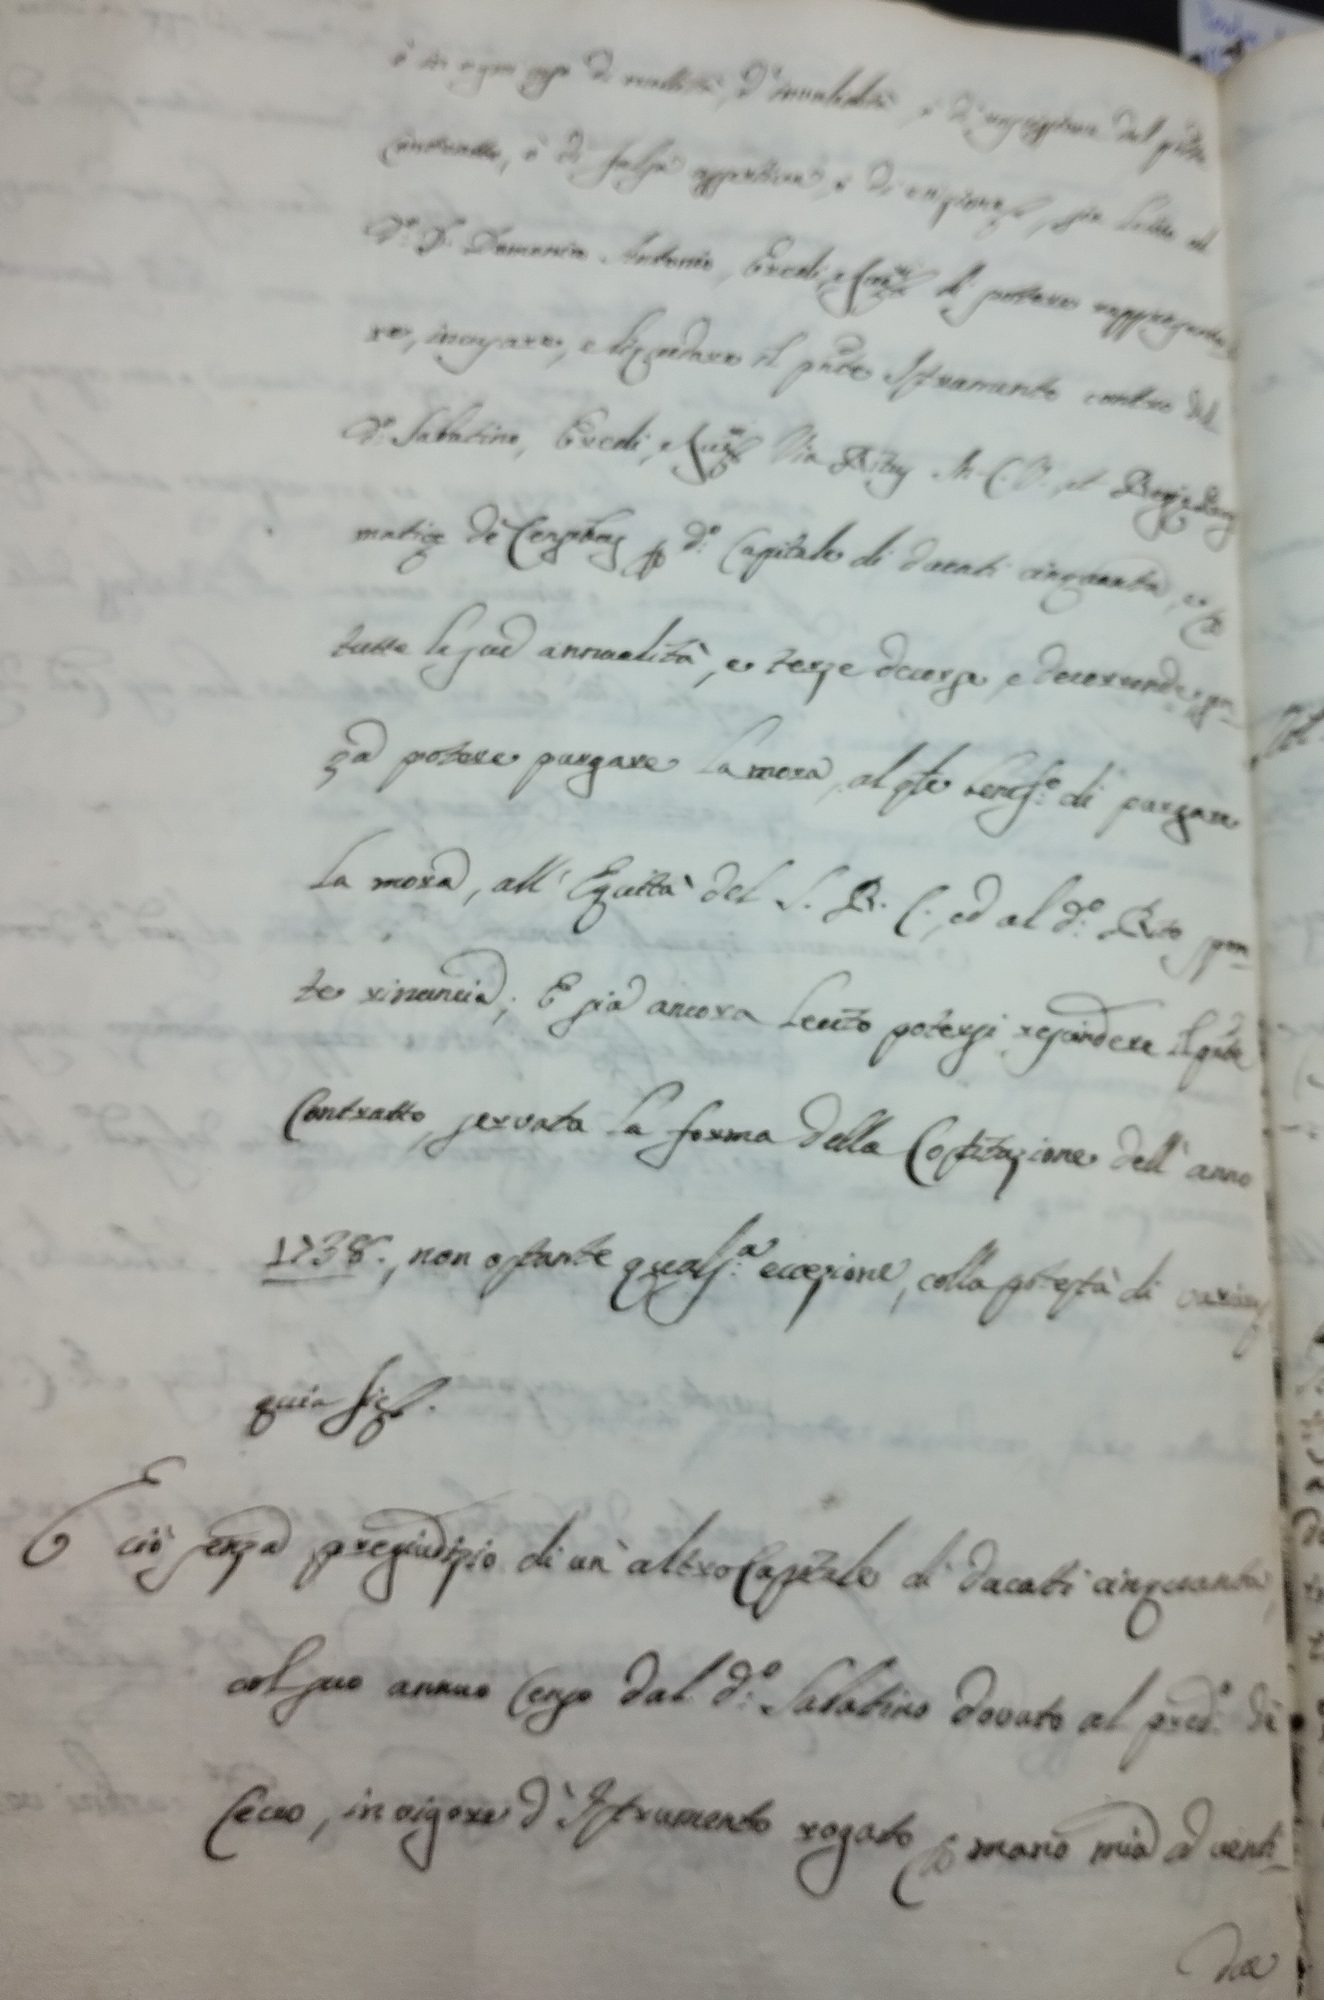 o in ogni caso di nullità, d'invalidità, o d'eccezione del p̃nte
Contratto, o di falsa assertiva, o d'evizione, sia lecito al
d.º D. Domenico Antonio, Eredi, e di potere rappresenta-
re, incusare, e liquidare il p̃nte Istrumento contro del
d.º Sabatino, Eredi, Via Ritus M. C. V., et Regie Prag
matice de Censibus d.º Capitale di docati cinquanta, e
tutte le sue annualità, e terze decorse, e decorrende, sen-
za potere purgare la mora, al q̃le benef.º di purgare
la mora, all'Equità del S. R. C., ed al d.º Rito spon
te rinuncia; E sia ancora lecito potersi rescindere il p̃nte
Contratto, servata la forma della Costituzione dell'anno
1738., non ostante quals.ª eccezione, colla potestà di variare
quia sic.
E ciò senza pregiudizio di un'altro Capitale di ducati cinquanta,
col suo annuo Censo dal d.º Sabatino dovuto al pred.º di
Cecco, in vigore d'Istrumento rogato mano mia a venti-
due